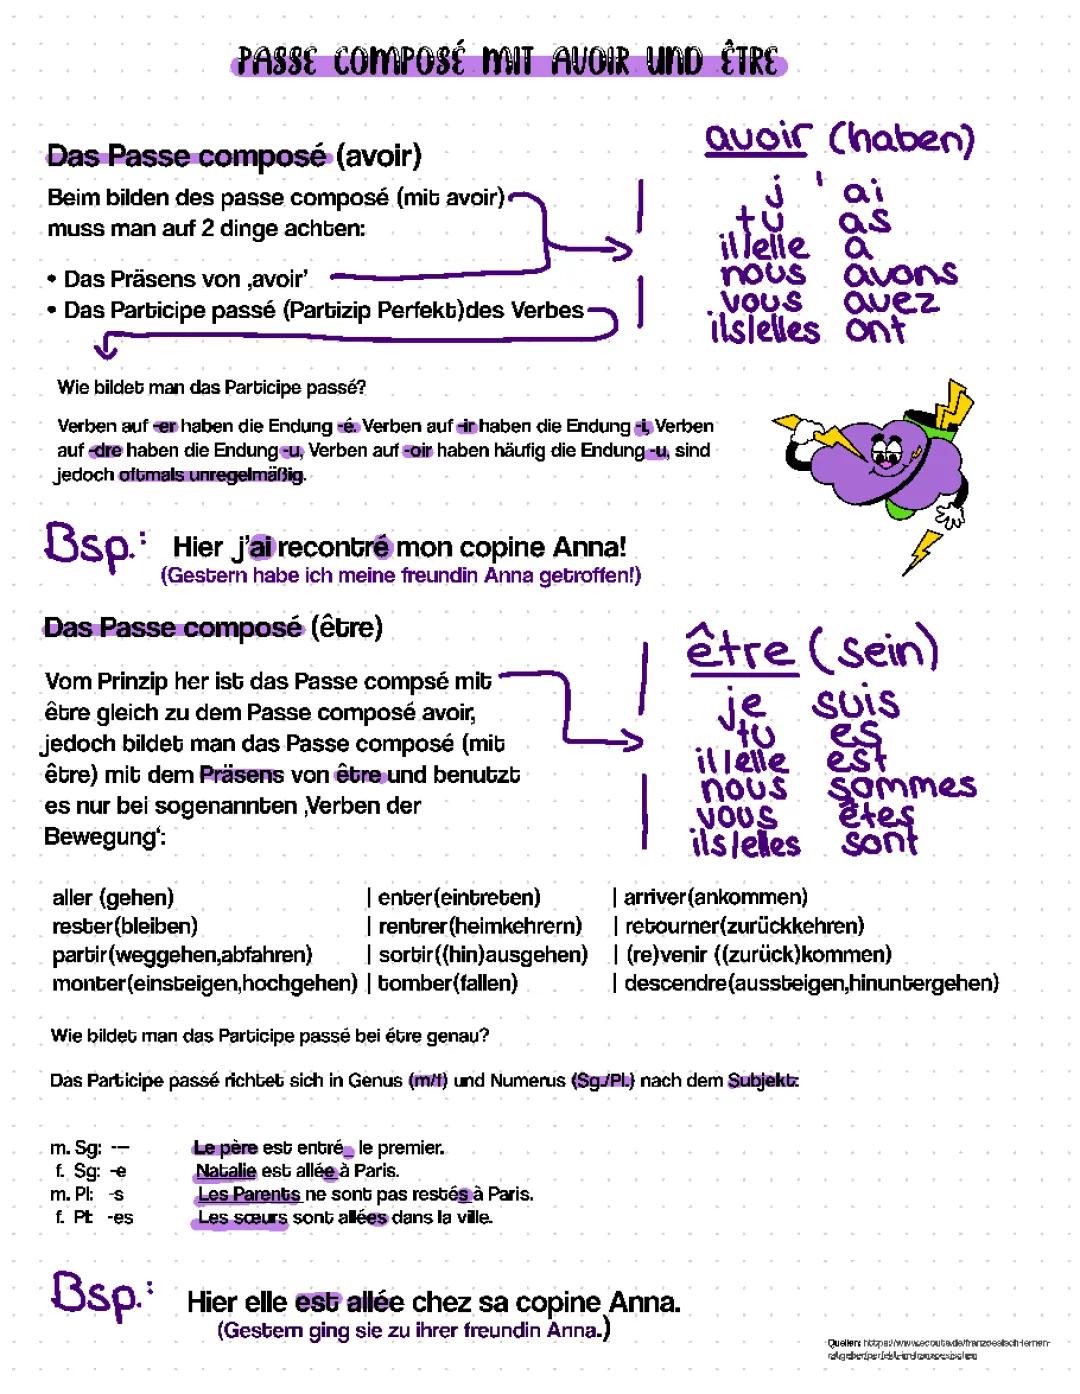 PASSE COMPOSÉ MIT AVOIR UND ÊTRE
Das Passe composé (avoir)
Beim bilden des passe composé (mit avoir)
muss man auf 2 dinge achten:
• Das Präsens von ‚avoir'
• Das Participe passé (Partizip Perfekt)des Verbes
avoir (haben)
j ' ai
tu as
il/elle a
nous avons
vous avez
ils/elles ont
Wie bildet man das Participe passé?
Verben auf -er haben die Endung -é. Verben auf -ir haben die Endung -i, Verben
auf -dre haben die Endung -u, Verben auf -oir haben häufig die Endung -u, sind
jedoch oftmals unregelmäßig.
Bsp.: Hier j'ai recontré mon copine Anna!
(Gestern habe ich meine freundin Anna getroffen!)
Das Passe composé (être)
Vom Prinzip her ist das Passe compsé mit
être gleich zu dem Passe composé avoir,
jedoch bildet man das Passe composé (mit
être) mit dem Präsens von être und benutzt
es nur bei sogenannten ‚Verben der
Bewegung':
être (sein)
je suis
tu es
il/elle est
nous sommes
vous êtes
ils/elles sont
aller (gehen) | enter(eintreten) | arriver(ankommen)
rester(bleiben) | rentrer(heimkehrern) | retourner(zurückkehren)
partir(weggehen,abfahren) | sortir((hin)ausgehen) | (re)venir ((zurück)kommen)
monter(einsteigen,hochgehen) | tomber(fallen) | descendre(aussteigen,hinuntergehen)
Wie bildet man das Participe passé bei étre genau?
Das Participe passé richtet sich in Genus (m/f) und Numerus (Sg./Pl.) nach dem Subjekt:
m. Sg: -– Le père est entré_ le premier.
f. Sg: -e Natalie est allée à Paris.
m. Pl: -s Les Parents ne sont pas restés à Paris.
f. Pl: -es Les sœurs sont allées dans la ville.
Bsp.: Hier elle est allée chez sa copine Anna.
(Gestern ging sie zu ihrer freundin Anna.)
Quellen: https://www.ecoute.de/franzoesisch-lernen-
ratgeber/perfekt-im-franzoesischen